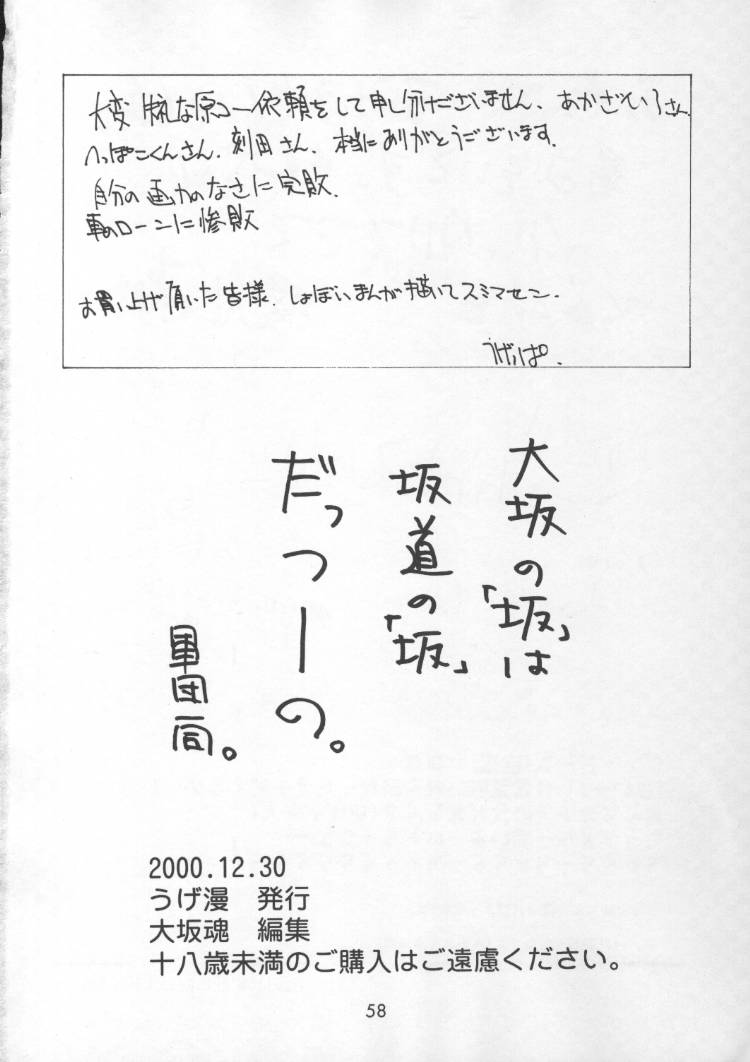 大変 無茶な原コー依頼をして申し分けございません、あかざわいろさん
へっぽこくんさん、刻田さん、本当にありがとうございます.
自分の画力のなさに完敗.
車のローンに惨敗
お買い上げ頂いた皆様. しょぼいまんが描いてスミマセン.
うげっぱ.
大坂の「坂」は
坂道の「坂」
だっつーの。
軍団一同。
2000.12.30
うげ漫 発行
大坂魂 編集
十八歳未満のご購入はご遠慮ください。
58